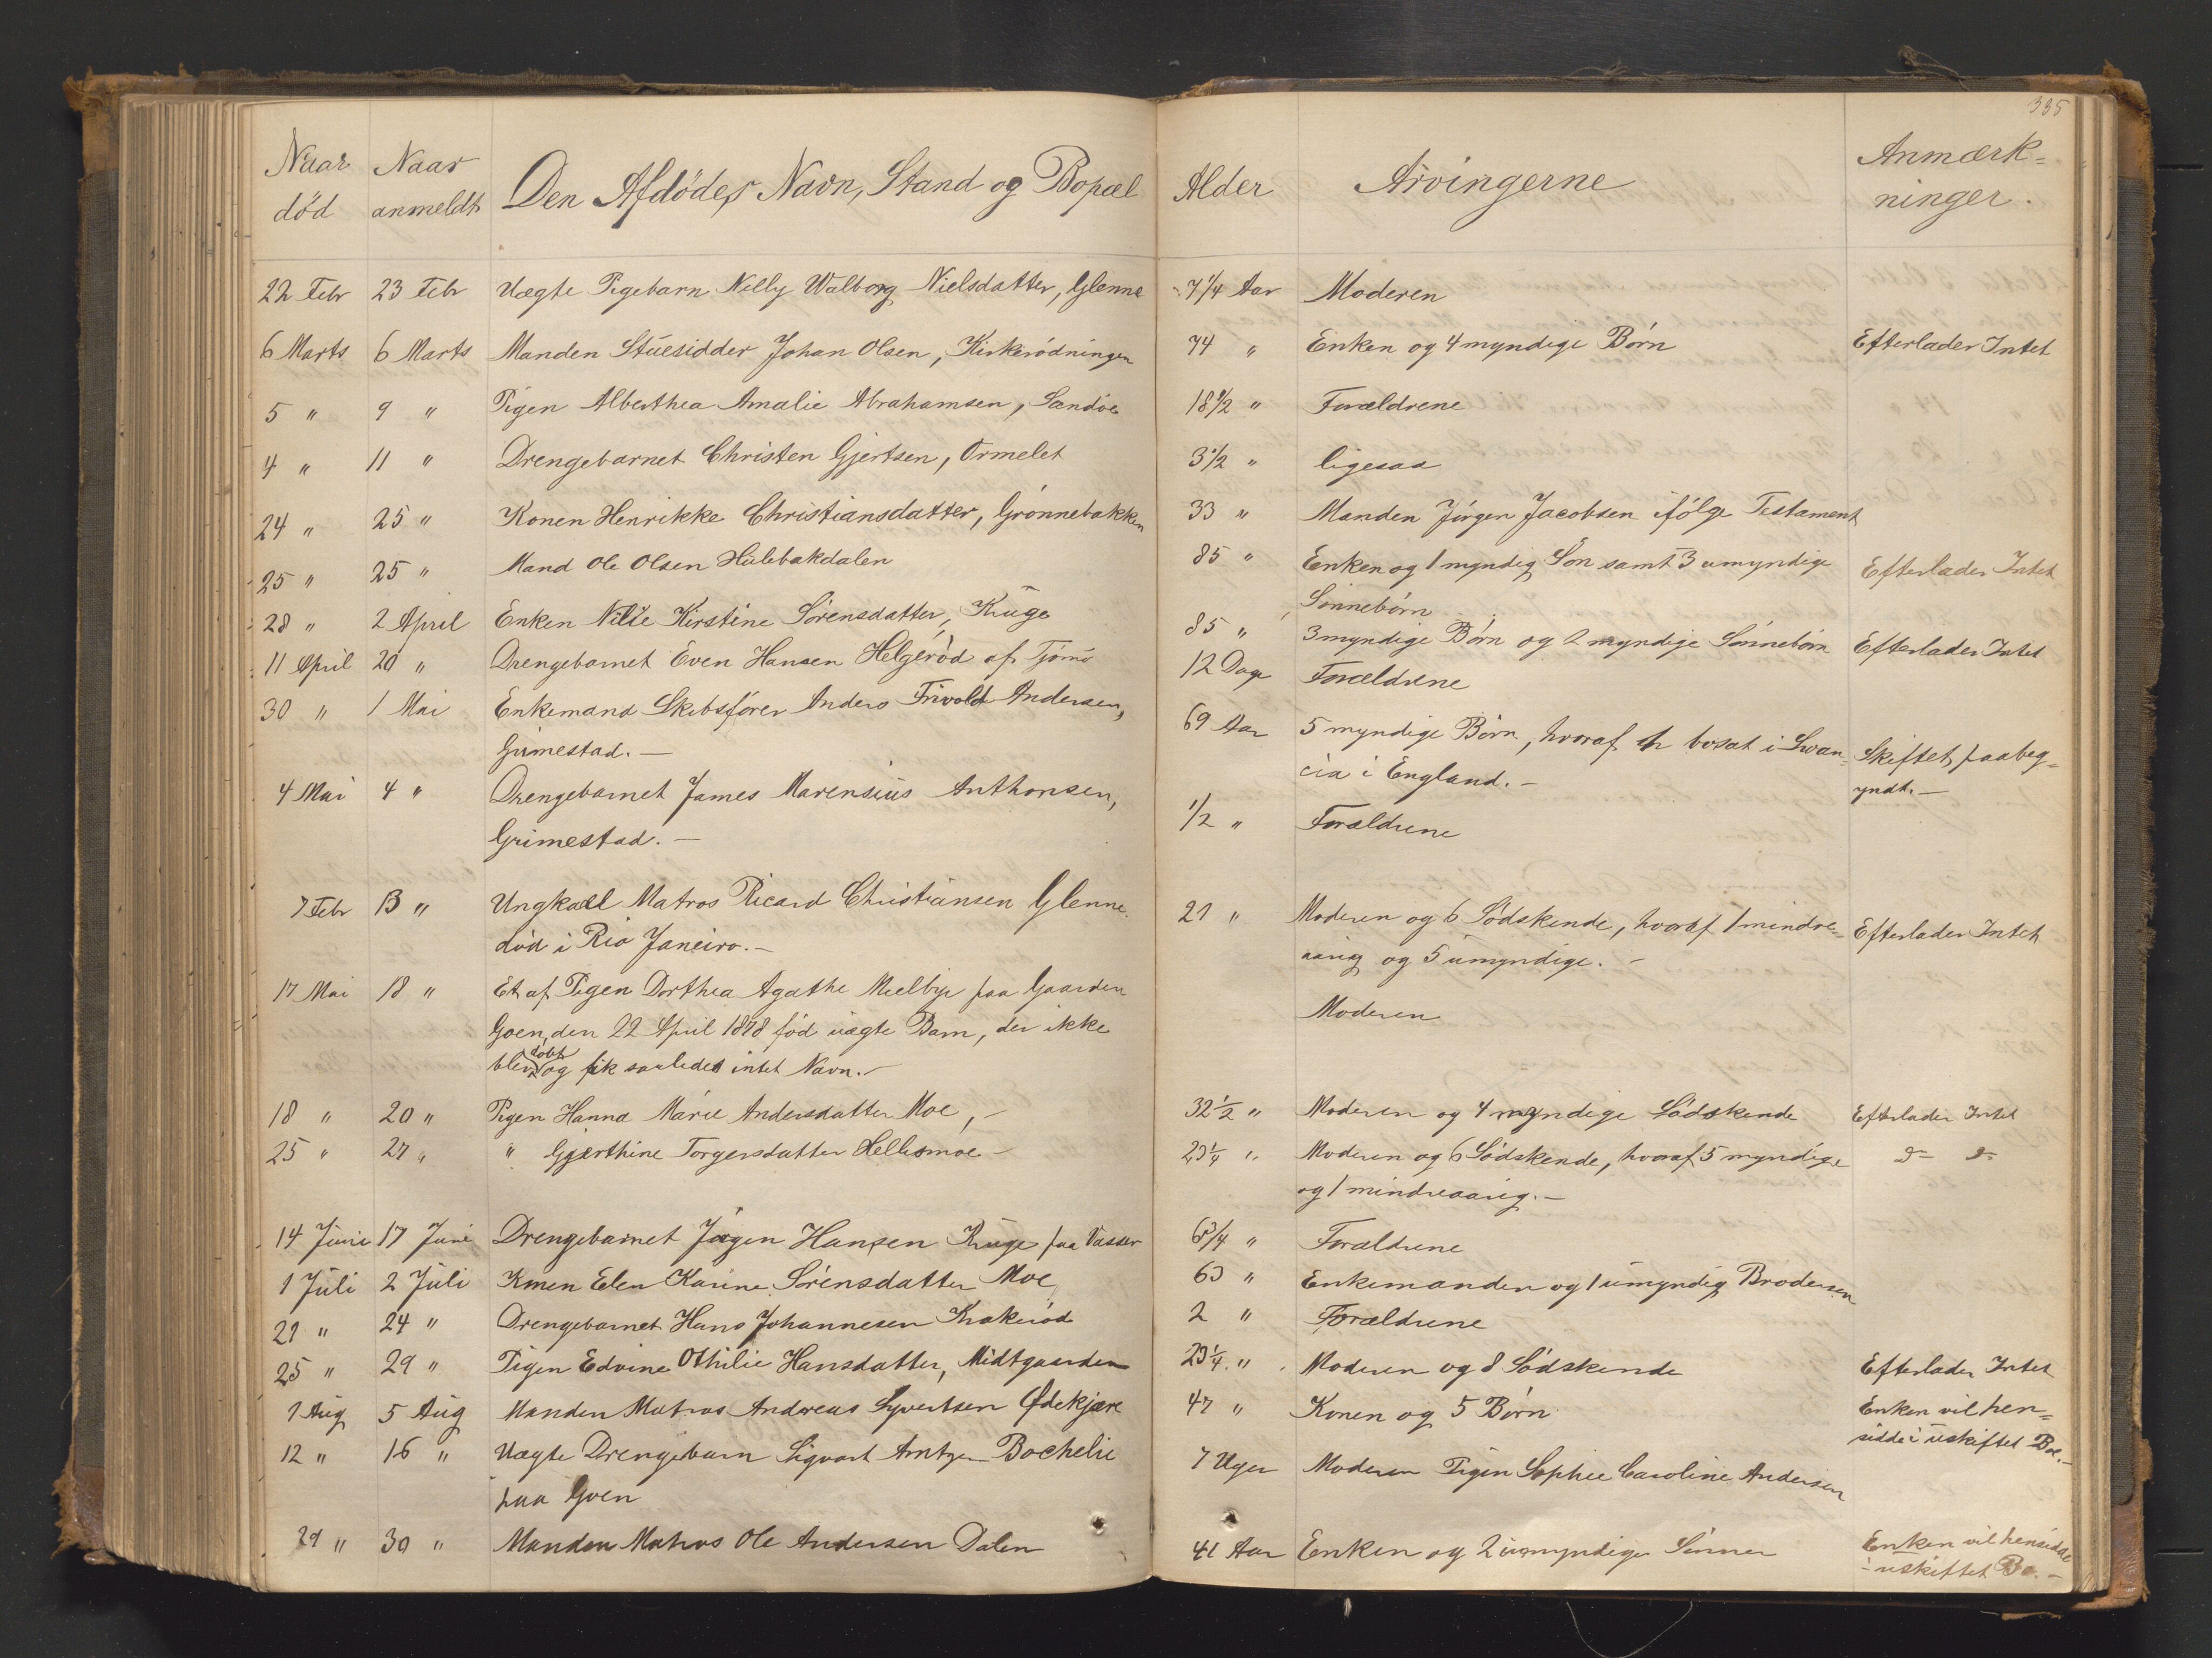 335
Naar død | Naar anmeldt | Den Afdødes Navn, Stand og Bopæl | Alder | Arvingerne | Anmærk=
ninger.
22 Febr | 23 Febr | Uægte Pigebarn Nelly Walborg Nielsdatter, Glenne | 7 1/4 Aar | Moderen
6 Marts | 6 Marts | Manden Stuesidder Johan Olsen, Kirkerödningen | 74 " | Enken og 4 myndige Børn | Efterlader Intet
5 " | 9 " | Pigen Alberthea Amalie Abrahamsen, Sandöe | 18 1/2 " | Forældrene
4 " | 11 " | Drengebarnet Christen Gjertsen, Ormelet | 3 1/2 " | ligesaa
24 " | 25 " | Konen Henrikke Christiansdatter, Grönnebakken | 33 " | Manden Jörgen Jacobsen ifölge Testament
25 " | 25 " | Mand Ole Olsen Hulebakdalen | 85 " | Enken og 1 myndig Sön samt 3 umyndige | Efterlader Intet
Sönnebörn
28 " | 2 April | Enken Nilie Kirstine Sörensdatter, Kruge | 85 " | 3 myndige Børn og 2 myndige Sönnebörn | Efterlader Intet
11 April | 20 " | Drengebarnet Even Hansen Helgeröd af Tjömö | 12 Dage | Forældrene
30 " | 1 Mai | Enkemand Skibsförer Anders Trivold Andersen, | 69 Aar | 5 myndige Børn, hvoraf bosat i Swan= | Skiftet paabeg=
Grimestad. — | cia i England. — | yndt. —
4 Mai | 4 " | Drengebarnet James Marensius Anthonsen, | 1/2 " | Forældrene
Grimestad. —
7 Febr | 13 " | Ungkarl Matros Ricard Christiansen Glenne | 21 " | Moderen og 6 Södskende, hvoraf 1 mindre= | Efterlader Intet
död i Rio Janeiro. — | aarig og 5 umyndige. —
17 Mai | 18 " | Et af Pigen Dorthea Agathe Mielbye paa Gaarden | Moderen
Goen, den 22 April 1878 född uægte Barn, der ikke
blev döbt og fik saaledes intet Navn. —
18 " | 20 " | Pigen Hanna Marie Andersdatter Moe, — | 32 1/2 " | Moderen og 4 myndige Södskende | Efterlader Intet
25 " | 27 " | " Gjerthine Torgersdatter Hellismoe — | 23 1/4 " | Moderen og 6 Södskende, hvoraf 5 myndige | do do
og 1 mindreaarig. —
14 Juni | 17 Juni | Drengebarnet Jörgen Hansen Kruge paa Vasser | 6 3/4 " | Forældrene
1 Juli | 2 Juli | Konen Elen Karine Sörensdatter Moe | 63 " | Enkemanden og 1 umyndig Brodersen
21 " | 24 " | Drengebarnet Hans Johannesen Krakeröd | 2 " | Forældrene
25 " | 29 " | Pigen Edvine Othilie Hansdatter, Midtgaarden | 23 1/4 " | Moderen og 8 Södskende | Efterlader Intet
1 Aug | 5 Aug | Manden Matros Andreas Syvertsen Ødekjære | 47 " | Konen og 5 Børn | Enken vil hen=
sidde i uskiftet Bo. —
12 " | 16 " | Uægte Drengebarn Sigvart Arntzen Bochelie | 7 Uger | Moderen Pigen Sophie Caroline Andersen
paa Goen
29 " | 30 " | Manden Matros Ole Andersen Dalen | 41 Aar | Enken og 2 umyndige Sönner | Enken vil hensidde
i uskiftet Bo. —